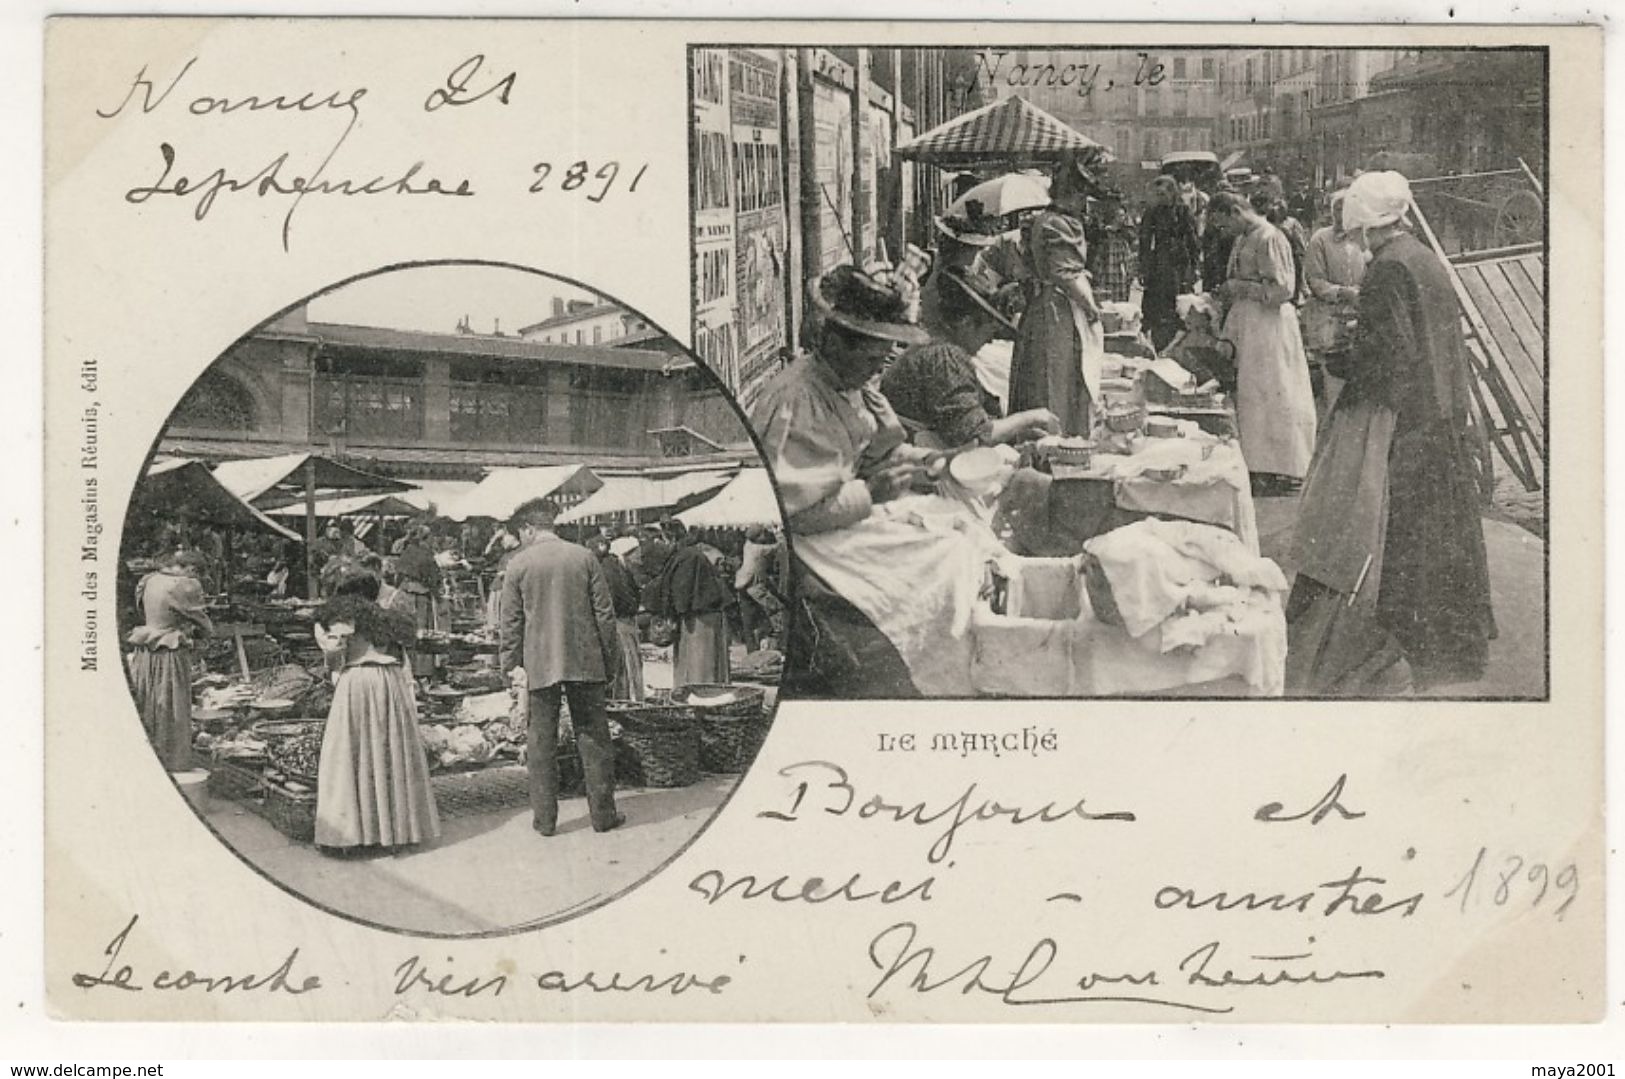 Nancy 21
Septembre 1891
Nancy, le
LE
DE NANCY
Maison des Magasins Réunis, édit
LE MARCHÉ
Bonjour et
merci - amitiés 1899
Lecomte bien arrivé
delcampe.net
maya2001